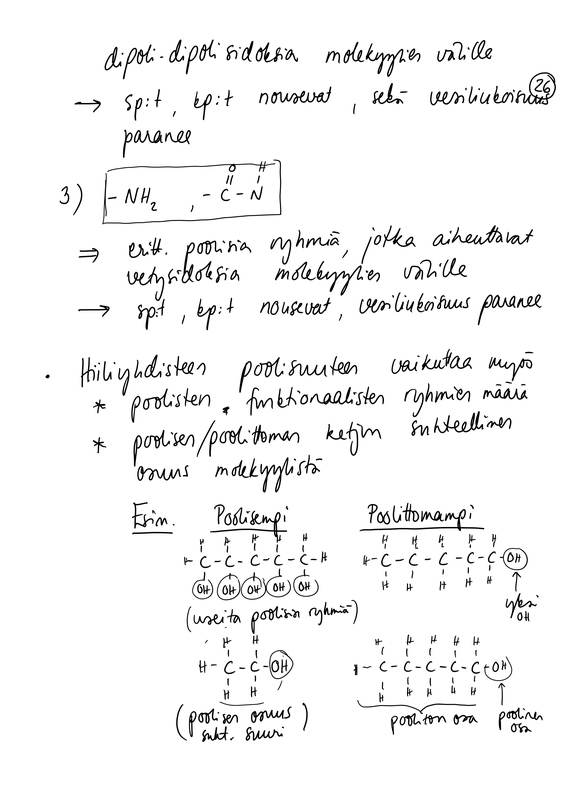 dipoli-dipoli sidoksia molekyylien välille
26
→ sp:t , kp:t nousevat , sekä vesiliukoisuus
paranee
3) - NH₂ , - C - N
O H
⇒ eritt. poolisia ryhmiä, jotka aiheuttavat
vetysidoksia molekyylien välille
→ sp:t , kp:t nousevat , vesiliukoisuus paranee
• Hiiliyhdisteen poolisuuteen vaikuttaa myö
* poolisten funktionaalisten ryhmien määrä
* poolisen/poolittoman ketjun suhteellinen
osuus molekyylistä
Esim. Poolisempi Poolittomampi
H H H H H H H H H
H - C - C - C - C - C - H H - C - C - C - C - C - OH
OH OH OH OH OH H H H H H
(useita poolisia ryhmiä) yksi
OH
H H H H H H H
H - C - C - OH - C - C - C - C - C - OH
H H H H H H H
(poolisen osuus pooliton osa poolinen
suht. suuri) osa